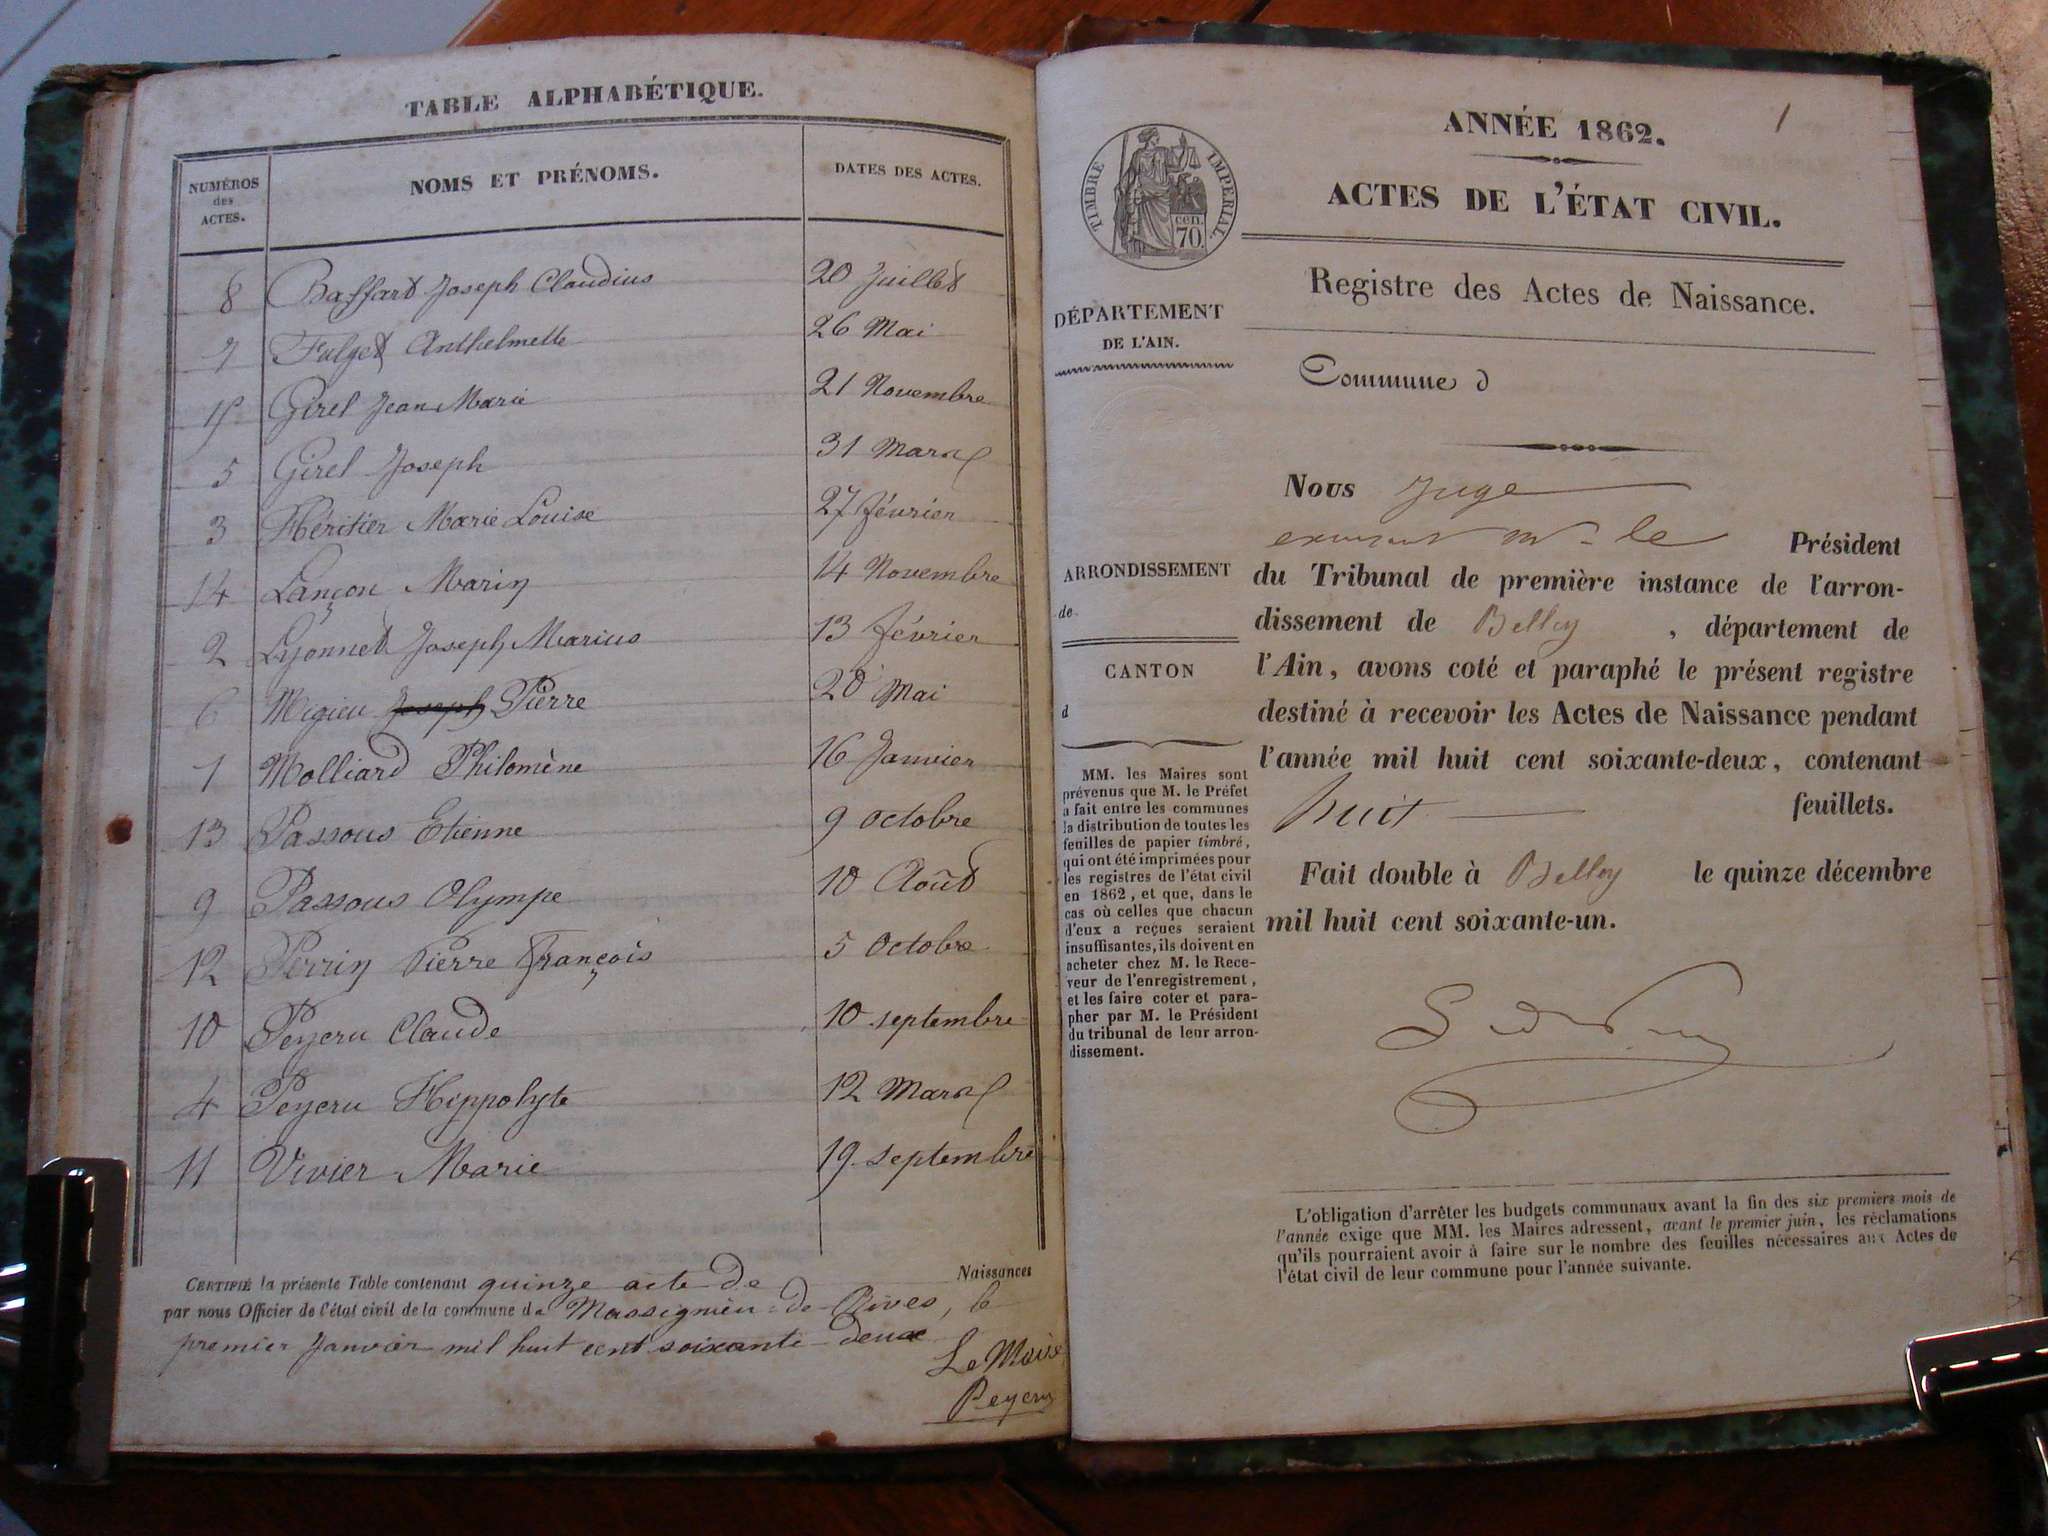 TABLE ALPHABÉTIQUE.
NUMÉROS des ACTES. NOMS ET PRÉNOMS. DATES DES ACTES.
8 Baffard Joseph Claudius 20 Juillet
7 Fulget Anthelmette 26 Mai
15 Girel Jean Marie 21 Novembre
5 Girel Joseph 31 Mars
3 Héritier Marie Louise 27 février
14 Lançon Marin 14 Novembre
2 Lyonnet Joseph Marius 13 février
6 Migieu Joseph Pierre 20 Mai
1 Molliard Philomène 16 Janvier
13 Passous Etienne 9 octobre
9 Passous Olympe 10 Août
12 Perrin Pierre François 5 Octobre
10 Peyeru Claude 10 septembre
4 Peyeru Hippolyte 12 Mars
11 Vivier Marie 19 septembre
CERTIFIÉ la présente Table contenant quinze acte de Naissances
par nous Officier de l'état civil de la commune de Massignieu-de-Rives, le
premier Janvier mil huit cent soixante deux
Le Maire
Peyeru
1
ANNÉE 1862.
ACTES DE L'ÉTAT CIVIL.
TIMBRE IMPERIAL.
70. cen.
Registre des Actes de Naissance.
DÉPARTEMENT
DE L'AIN.
Commune d
ARRONDISSEMENT
de
CANTON
d
MM. les Maires sont
prévenus que M. le Préfet
a fait entre les communes
la distribution de toutes les
feuilles de papier timbré,
qui ont été imprimées pour
les registres de l'état civil
en 1862, et que, dans le
cas où celles que chacun
d'eux a reçues seraient
insuffisantes, ils doivent en
acheter chez M. le Rece-
veur de l'enregistrement,
et les faire coter et para-
pher par M. le Président
du tribunal de leur arron-
dissement.
Nous Juge
M. le Président
du Tribunal de première instance de l'arron-
dissement de Belley, département de
l'Ain, avons coté et paraphé le présent registre
destiné à recevoir les Actes de Naissance pendant
l'année mil huit cent soixante-deux, contenant
huit feuillets.
Fait double à Belley le quinze décembre
mil huit cent soixante-un.
L'obligation d'arrêter les budgets communaux avant la fin des six premiers mois de
l'année exige que MM. les Maires adressent, avant le premier juin, les réclamations
qu'ils pourraient avoir à faire sur le nombre des feuilles nécessaires aux Actes de
l'état civil de leur commune pour l'année suivante.